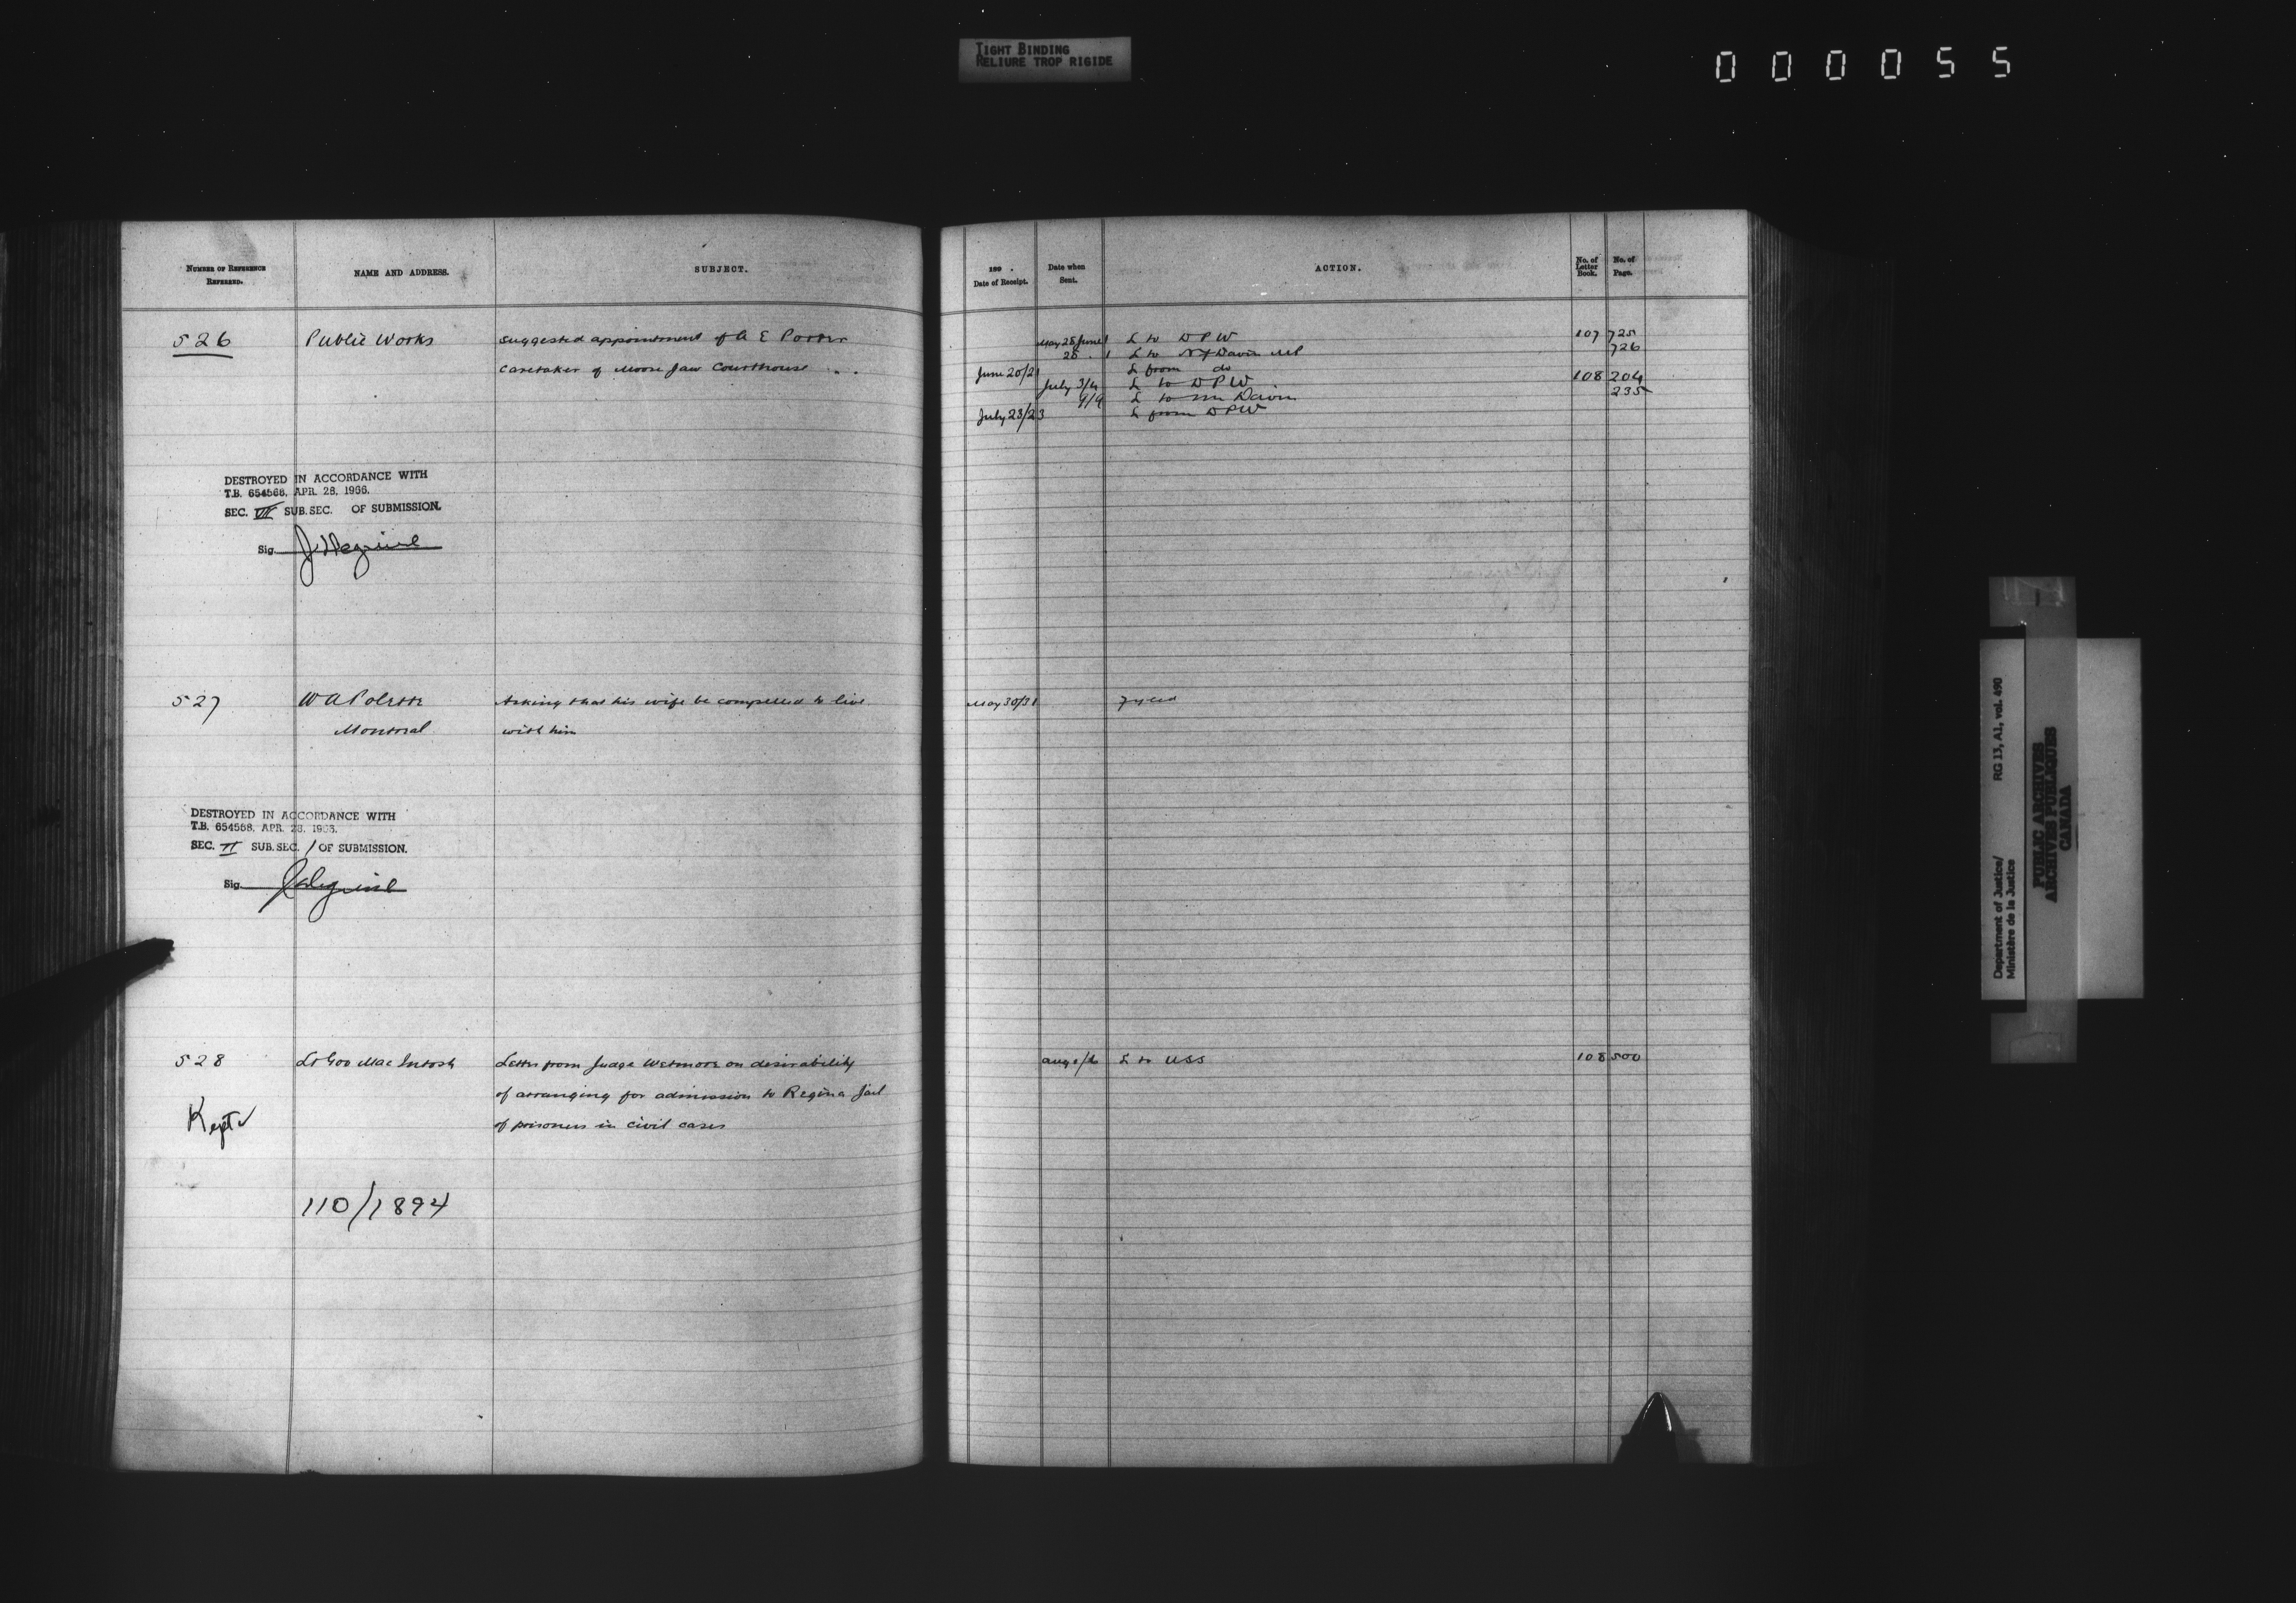 TIGHT BINDING
RELIURE TROP RIGIDE
000055
NUMBER OF REFERENCE REFERRED.
NAME AND ADDRESS.
SUBJECT.
526
Public Works
Suggested appointment of A E Porter
Caretaker of Moose Jaw Courthouse
DESTROYED IN ACCORDANCE WITH
T.B. 654568, APR. 28, 1966.
SEC. VII SUB. SEC. OF SUBMISSION.
Sig.
527
W A
Montreal
Asking that his wife be compelled to live
with him
DESTROYED IN ACCORDANCE WITH
T.B. 654568, APR. 28, 1966.
SEC. II SUB. SEC. 1 OF SUBMISSION.
Sig.
528
Lt Gov MacIntosh
Letter from Judge Wetmore on desirability
of arranging for admission to Regina Jail
of prisoners in civil cases
Kept
110/1894
189 .
Date of Receipt.
Date when Sent.
ACTION.
No. of Letter Book.
No. of Page.
May 28 June 1 L to D P W 107 725
28 . 1 L to N F Davin MP 726
June 20/21 L from do
July 3/4 L to D P W 108 204
4/4 L to Mr Davin 235
July 23/23 L from D P W
May 30/31 Fyled
L to USS 108 500
Department of Justice/
Ministère de la Justice
RG 13, A1, vol. 490
PUBLIC ARCHIVES
ARCHIVES PUBLIQUES
CANADA